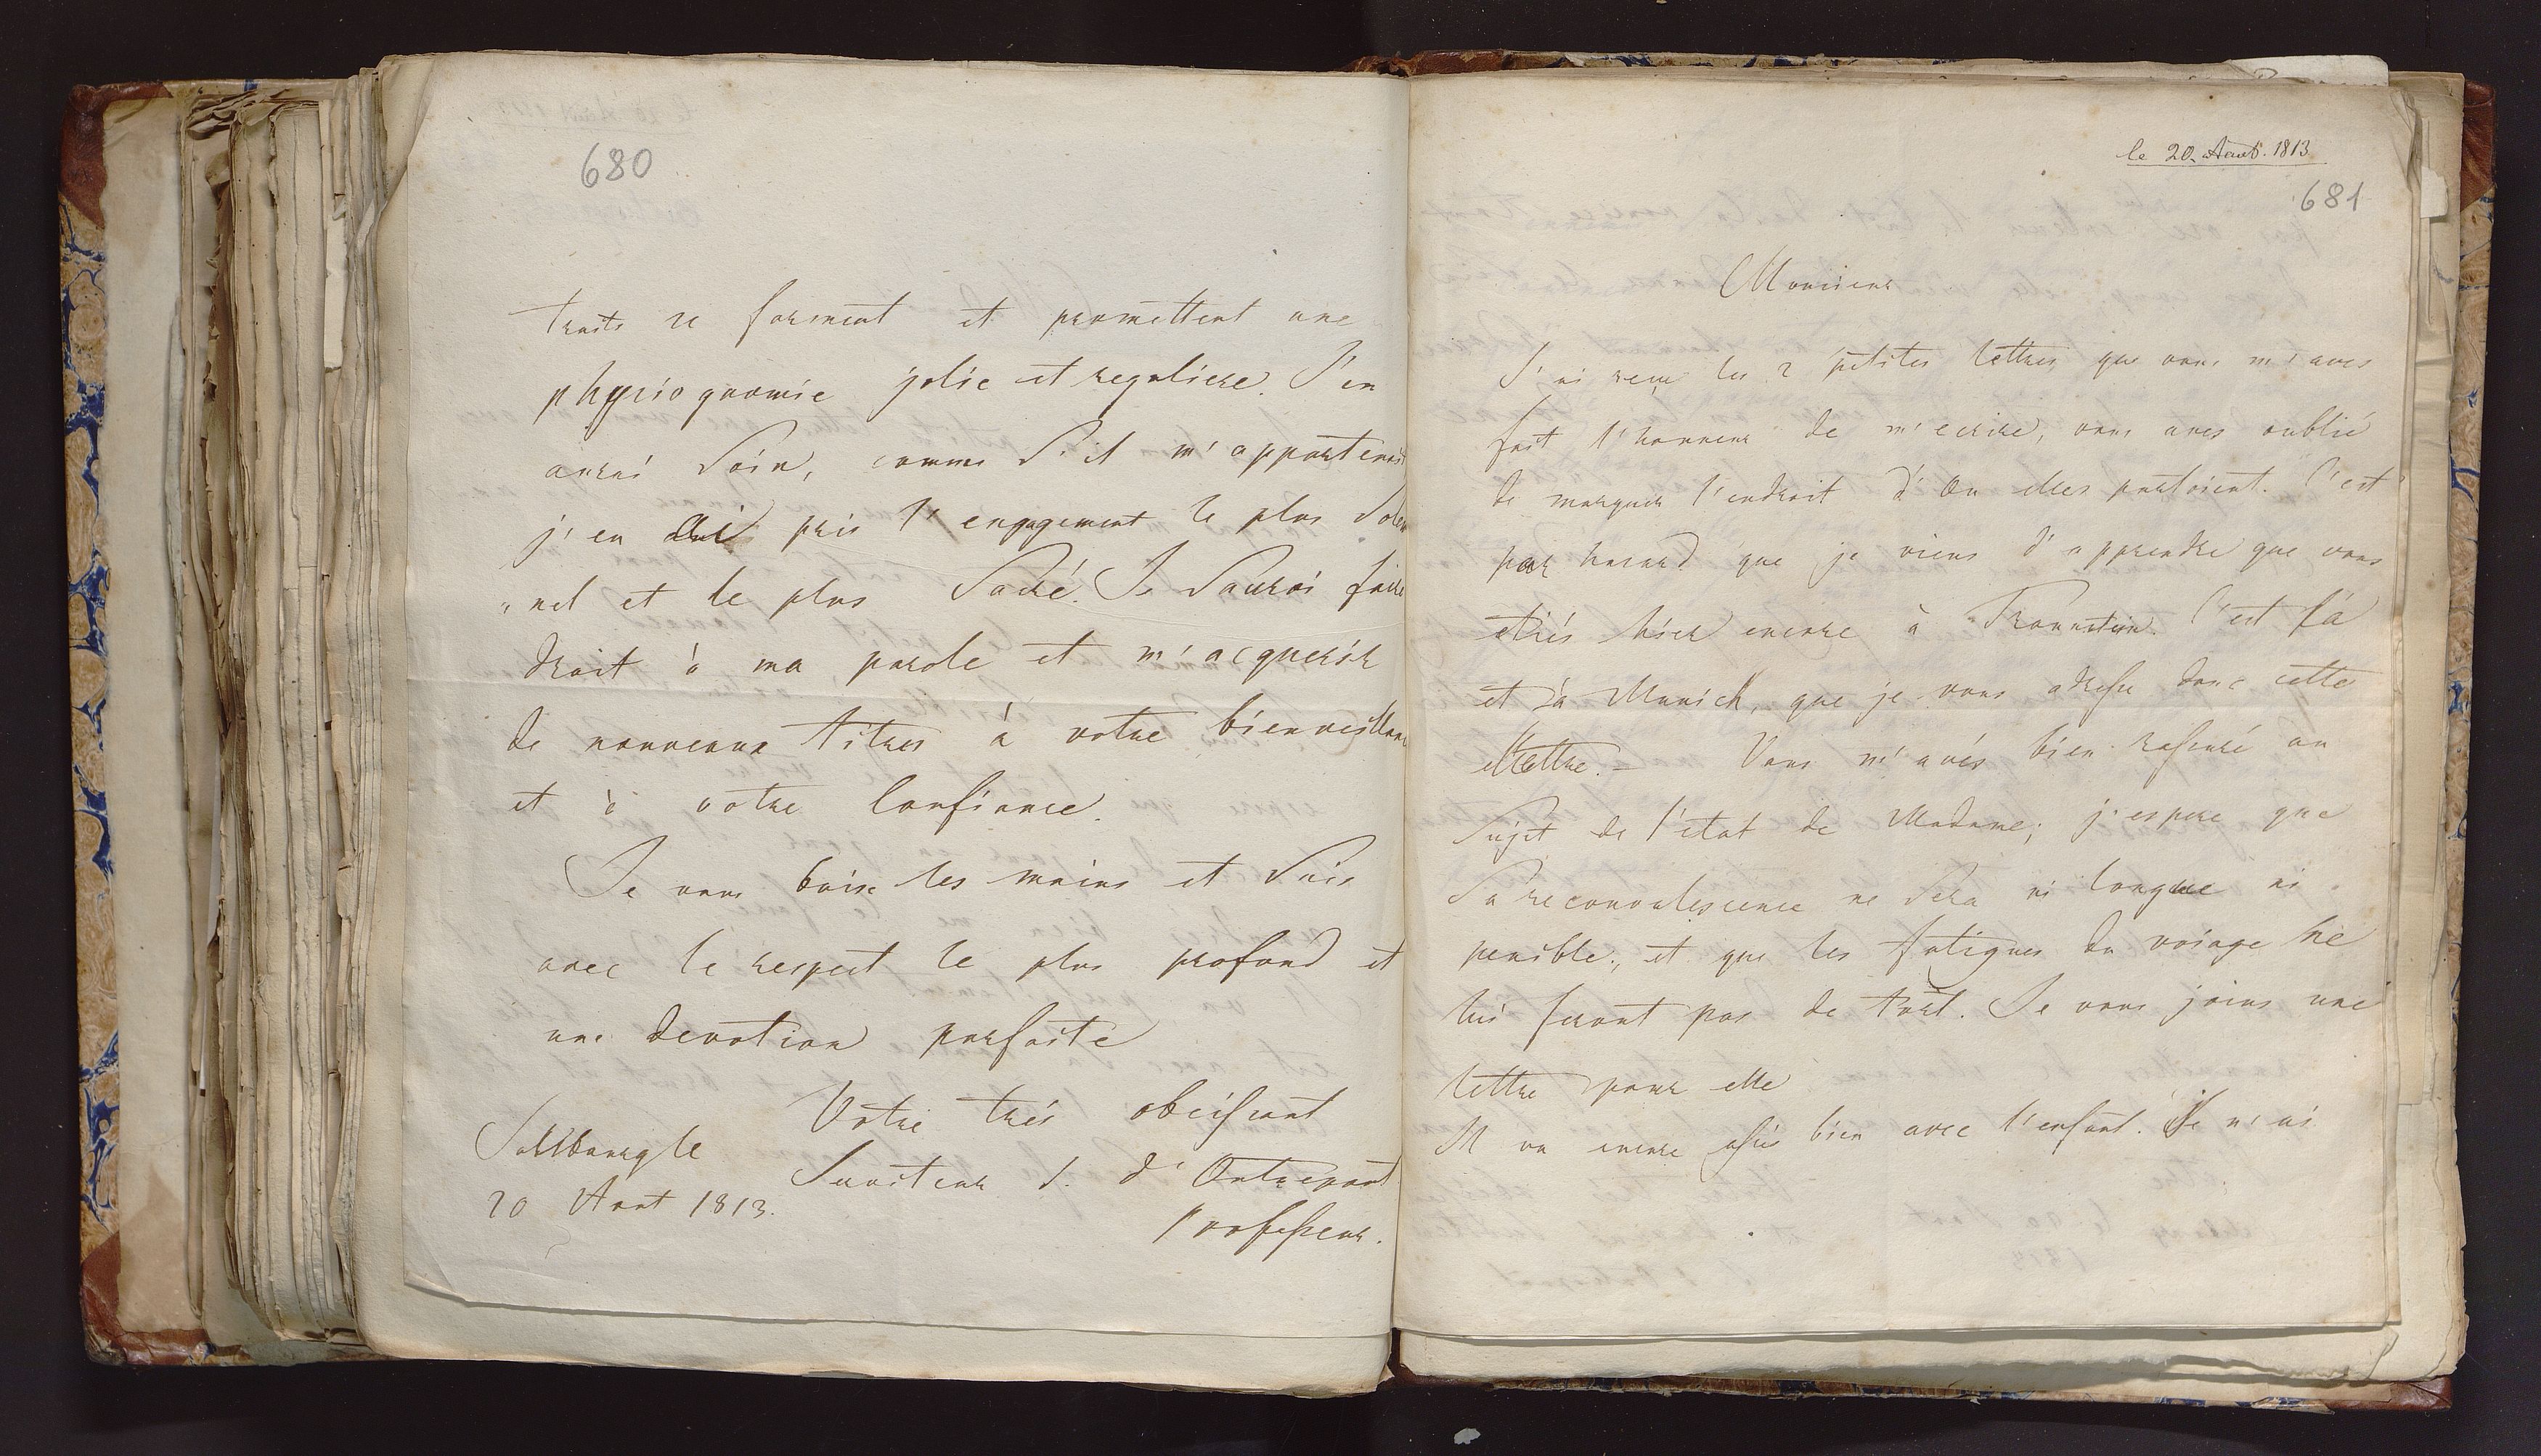 680
traits se forment et promettent une
physiognomie jolie et reguliere. J'en
aurai Soin, comme S'il m'appartenoit
j'en ai pris l'engagement le plus Solem
"nel et le plus Sacré. Je Saurai faire
droit à ma parole et m'acquerir
de nouveaux titres à votre bienveillance
et à votre Confiance.
Je vous baise les mains et Suis
avec le respect le plus profond et
une devotion parfaite
Votre très obeissant
Serviteur J. d' Outrepont
Professeur.
Salzbourg le
20 Aout 1813.
le 20. Aout. 1813
681
Monsieur
J'ai reçu les 2 petites lettres que vous m'aves
fait l'honneur de m'ecrire, vous aves oublié
de marquer l'endroit d'ou elles partoient. C'est
par hazard que je viens d'apprendre que vous
etiés hier encore à Traunstein. C'est là
et à Munich, que je vous adresse donc cette
lettre. — Vous m'avés bien rassuré au
Sujet de l'etat de Madame; j'espere que
Sa reconvalescence ne Sera ni longue ni
penible, et que les fatigues du voiage ne
lui feront pas de tort. Je vous joins une
lettre pour elle
Il va encore assés bien avec l'enfant. Je n'ai